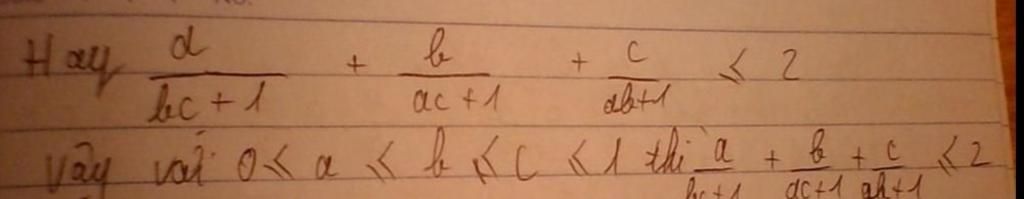 Hay a/(bc+1) + b/(ac+1) + c/(ab+1) ≤ 2
Vậy với 0 ≤ a ≤ b ≤ c ≤ 1 thì a/(bc+1) + b/(ac+1) + c/(ab+1) ≤ 2